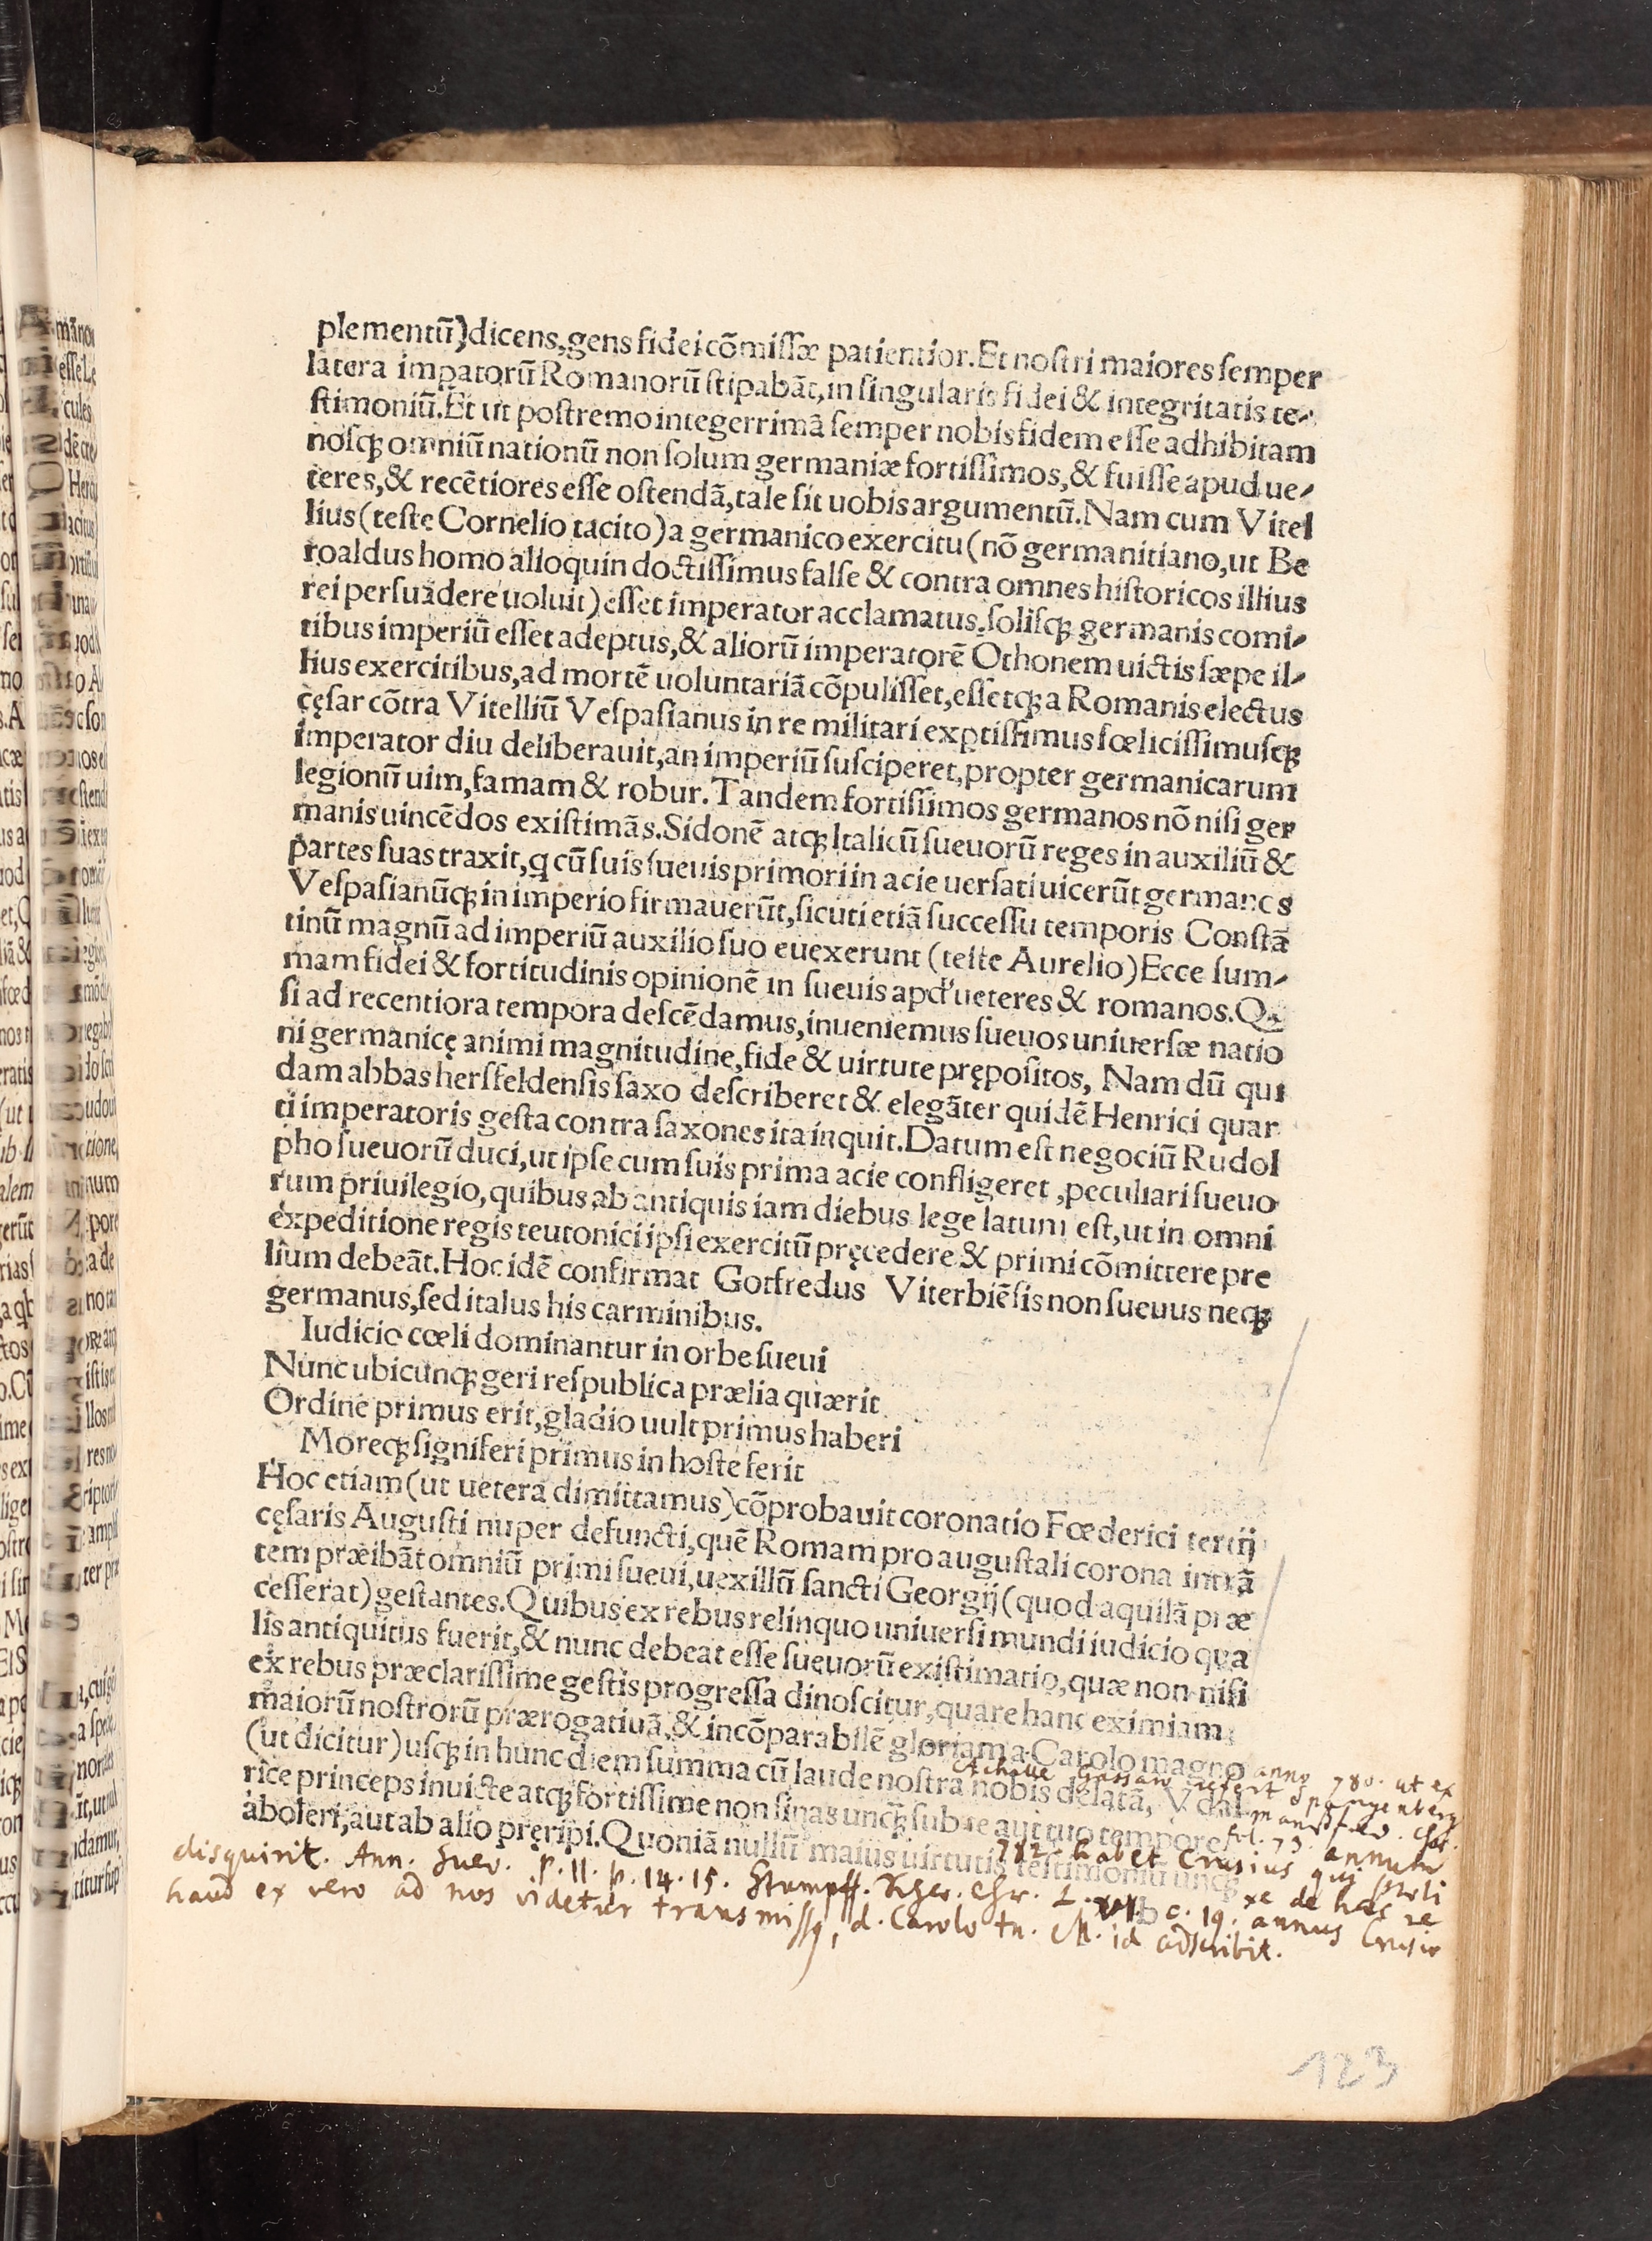 plementū)dicens,gens fidei cōmissæ patientior.Et nostri maiores semper
latera impatorū Romanorū stipabāt,in singularis fidei & integritatis te-
stimoniū.Et ut postremo integerrimā semper nobis fidem esse adhibitam
nosqꝫ omniū nationū non solum germaniæ fortissimos,& fuisse apud ue-
teres,& recētiores esse ostendā,tale sit uobis argumentū.Nam cum Vitel
lius(teste Cornelio tacito)a germanico exercitu(nō germanitiano,ut Be
roaldus homo alioquin doctissimus false & contra omnes historicos illius
rei persuadere uoluit)esset imperator acclamatus.solisqꝫ germanis comi-
tibus imperiū esset adeptus,& aliorū imperatorē Othonem uictis sæpe il-
lius exercitibus,ad mortē uoluntariā cōpulisset,essetqꝫ a Romanis electus
cęsar cōtra Vitelliū Vespasianus in re militari exꝑtissimus fœlicissimusqꝫ
imperator diu deliberauit,an imperiū susciperet,propter germanicarum
legionū uim,famam & robur.Tandem fortissimos germanos nō nisi ger
manis uincēdos existimās.Sidonē atqꝫ Italicū sueuorū reges in auxiliū &
partes suas traxit,q cū suis sueuis primori in acie uersati uicerūt germanos
Vespasianūqꝫ in imperio firmauerūt,sicuti etiā successu temporis Constā
tinū magnū ad imperiū auxilio suo euexerunt(teste Aurelio)Ecce sum-
mam fidei & fortitudinis opinionē in sueuis apd' ueteres & romanos.Q
si ad recentiora tempora descēdamus,inueniemus sueuos uniuersæ natio
ni germanicę animi magnitudine,fide & uirtute prępositos, Nam dū qui
dam abbas hersfeldensis saxo describeret & elegāter quidē Henrici quar
ti imperatoris gesta contra saxones ita inquit.Datum est negociū Rudol
pho sueuorū duci,ut ipse cum suis prima acie confligeret,peculiari sueuo
rum priuilegio,quibus ab antiquis iam diebus lege latum est,ut in omni
expeditione regis teutonici ipsi exercitū pręcedere & primi cōmittere pre
lium debeāt.Hoc idē confirmat Gotfredus Viterbiēsis non sueuus neqꝫ
germanus,sed italus his carminibus.
Iudicio cœli dominantur in orbe sueui
Nunc ubicunqꝫ geri respublica prælia quærit
Ordine primus erit,gladio uult primus haberi
Moreqꝫ signiferi primus in hoste ferit
Hoc etiam(ut uetera dimittamus)cōprobauit coronatio Fœderici tertij
cęsaris Augusti nuper defuncti,quē Romam pro augustali corona intrā
tem præibāt omniū primi sueui,uexillū sancti Georgij(quod aquilā præ
cesserat)gestantes.Quibus ex rebus relinquo uniuersi mundi iudicio qua
lis antiquitus fuerit,& nunc debeat esse sueuorū existimatio,quæ non nisi
ex rebus præclarissime gestis progressa dinoscitur,quare hanc eximiam
maiorū nostrorū prærogatiuā,& incōparabilē gloriam a Carolo magno
(ut dicitur)usqꝫ in hunc diem summa cū laude nostra nobis delatā, Vdal
rice princeps inuicte atqꝫ fortissime non sinas unqꝫ sub te aut tuo tempore
aboleri,aut ab alio pręripi.Quoniā nullū maius uirtutis testimoniū unqꝫ
anno 780. ut ex
Achille Gassaro refert Spangenberg
mansfeld. Chr.
fol. 73. annum
782. habet Crusius qui
disquirit. Ann. Suev. p. II. p. 14. 15. Stumpff. Chr. L. c. 19. de hac re
haud ex vero ad nos videtur transmissa, d. Carolo M. id adscribit. annus Crusio
123